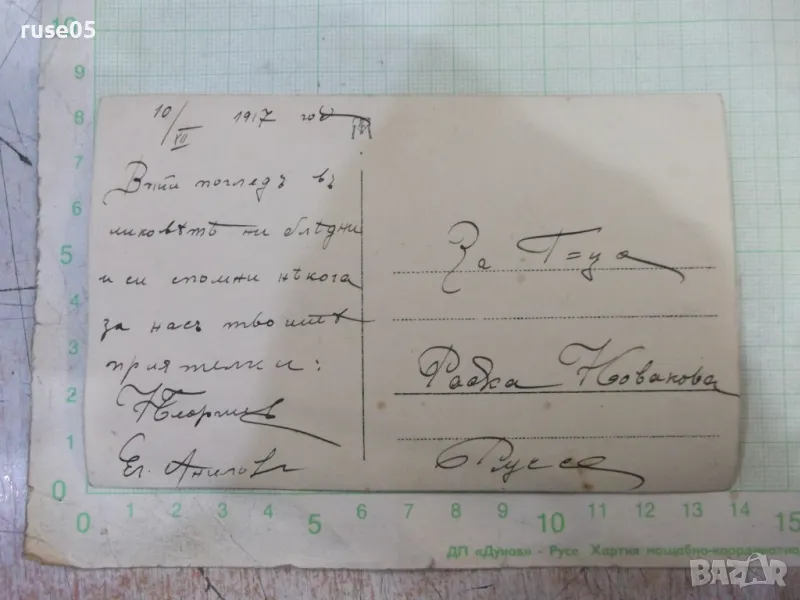 ruse05
10/XII 1917 год
Впий погледъ въ
ликоветѣ ни блѣдни
и си спомни нѣкога
за насъ твоитѣ
приятелки:
За Г=ца
Русе
10
9
8
7
6
5
4
3
2
1
0
0 1 2 3 4 5 6 7 8 9 10 11 12 13 14 15
ДП «Дунав» - Русе Хартия мощабно-координатно
BAZAR